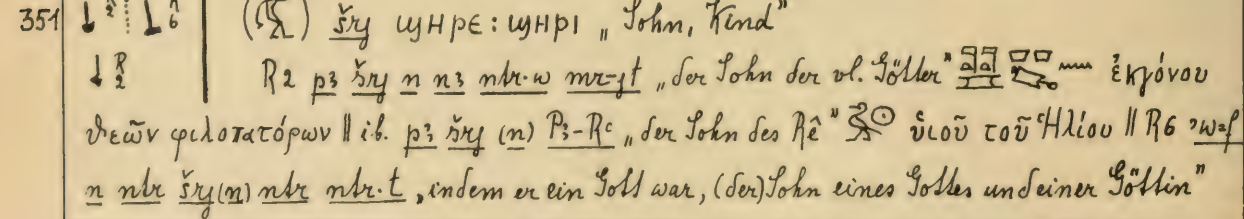 351 R 2 R 6 šrj ϣⲏⲣⲉ : ϣⲏⲣⲓ „Sohn, Kind"
R 2 R 2 pꜣ šrj n nꜣ ntr·w mr-jt „der Sohn der vl. Götter" ἐκγόνου
θεῶν φιλοπατόρων || ib. pꜣ šrj (n) Pꜣ-Rꜥ „der Sohn des Rê" υἱοῦ τοῦ Ἡλίου || R6 ꜣw=f
n ntr šrj (n) ntr ntr·t „indem er ein Gott war, (der) Sohn eines Gottes und einer Göttin"